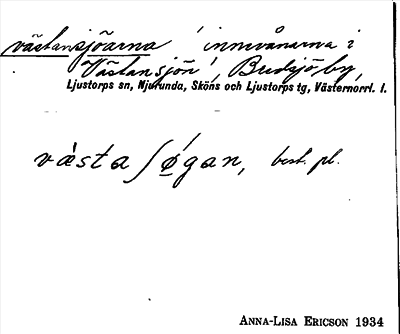 västansjöarna 'innevånarna i
'Västansjön', Bredsjö by,
Ljustorps sn, Njurunda, Sköns och Ljustorps tg, Västernorrl. l.
væ̀staʃø̀gan, best. pl.
ANNA-LISA ERICSON 1934